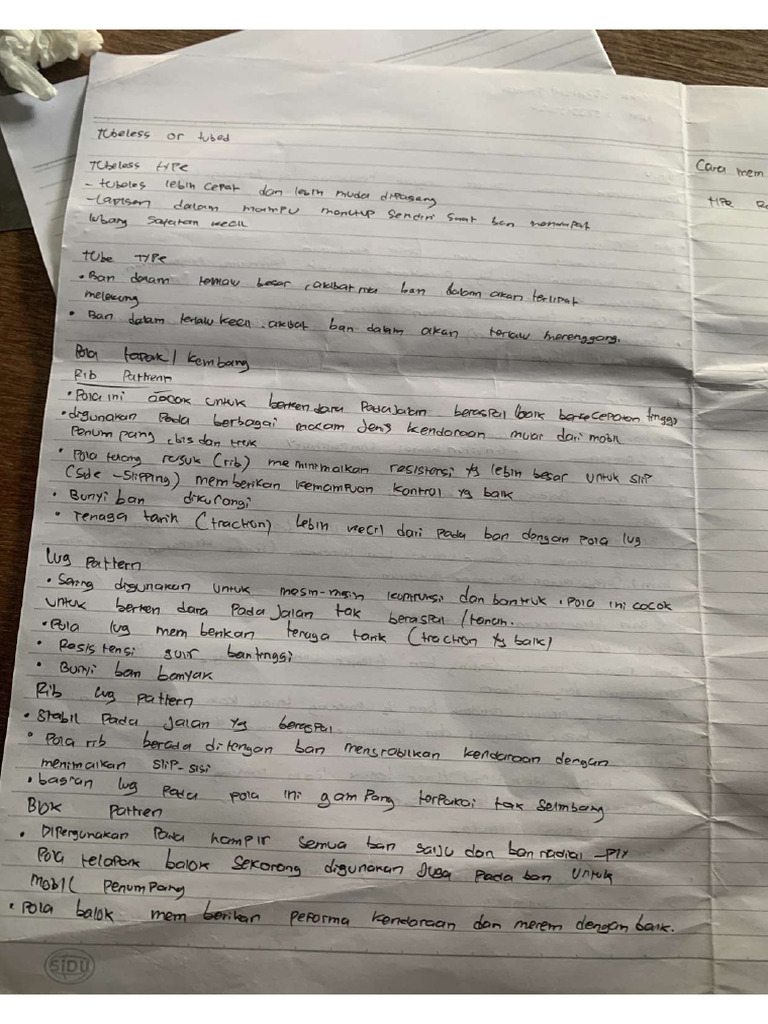 tubeless or tubed
Tubeless type
- tubeles lebih cepat dan lebih muda dipasang
- Lapisan dalam mampu menutup sendiri saat ban
lubang sayatan kecil
Tube Type
• Ban dalam terlalu besar, akibatnya ban dalam akan terlipat
melekung
• Ban dalam terlalu kecil. akibat ban dalam akan terlalu merenggang.
Pola tapak / kembang
Rib Pattrern
• Pola ini cocok untuk berkendara Pada jalan beraspal baik berkecepatan tinggi
• digunakan Pada berbagai macam jenis kendaraan mulai dari mobil
Penumpang, bis dan truk
• Pola tulang rusuk (rib) meminimalkan resistensi yg lebih besar untuk slip
(Side - Slipping) memberikan kemampuan kontrol yg baik
• Bunyi ban dikurangi
• Tenaga tarik (traction) lebih kecil dari pada ban dengan pola lug
Lug pattern
• Sering digunakan untuk mesin-mesin kontruksi dan ban truk. Pola ini cocok
untuk berkendara Pada Jalan tak beraspal / tanah.
• Pola lug memberikan tenaga tarik (traction yg baik)
• Resistensi gulir ban tinggi
• Bunyi ban banyak
Rib lug pattern
• Stabil Pada Jalan yg beraspal
• Pola rib berada ditengah ban menstabilkan kendaraan dengan
menimalkan slip-sisi
• bagian lug Pada pola ini gampang terpakai tak seimbang
Blok Pattren
• Dipergunakan Pada hampir semua ban salju dan ban radial -Ply
Pola telapak balok sekarang digunakan juga pada ban untuk
Mobil Penumpang
• Pola balok memberikan peforma kendaraan dan merem dengan baik.
SiDU
Cara mem